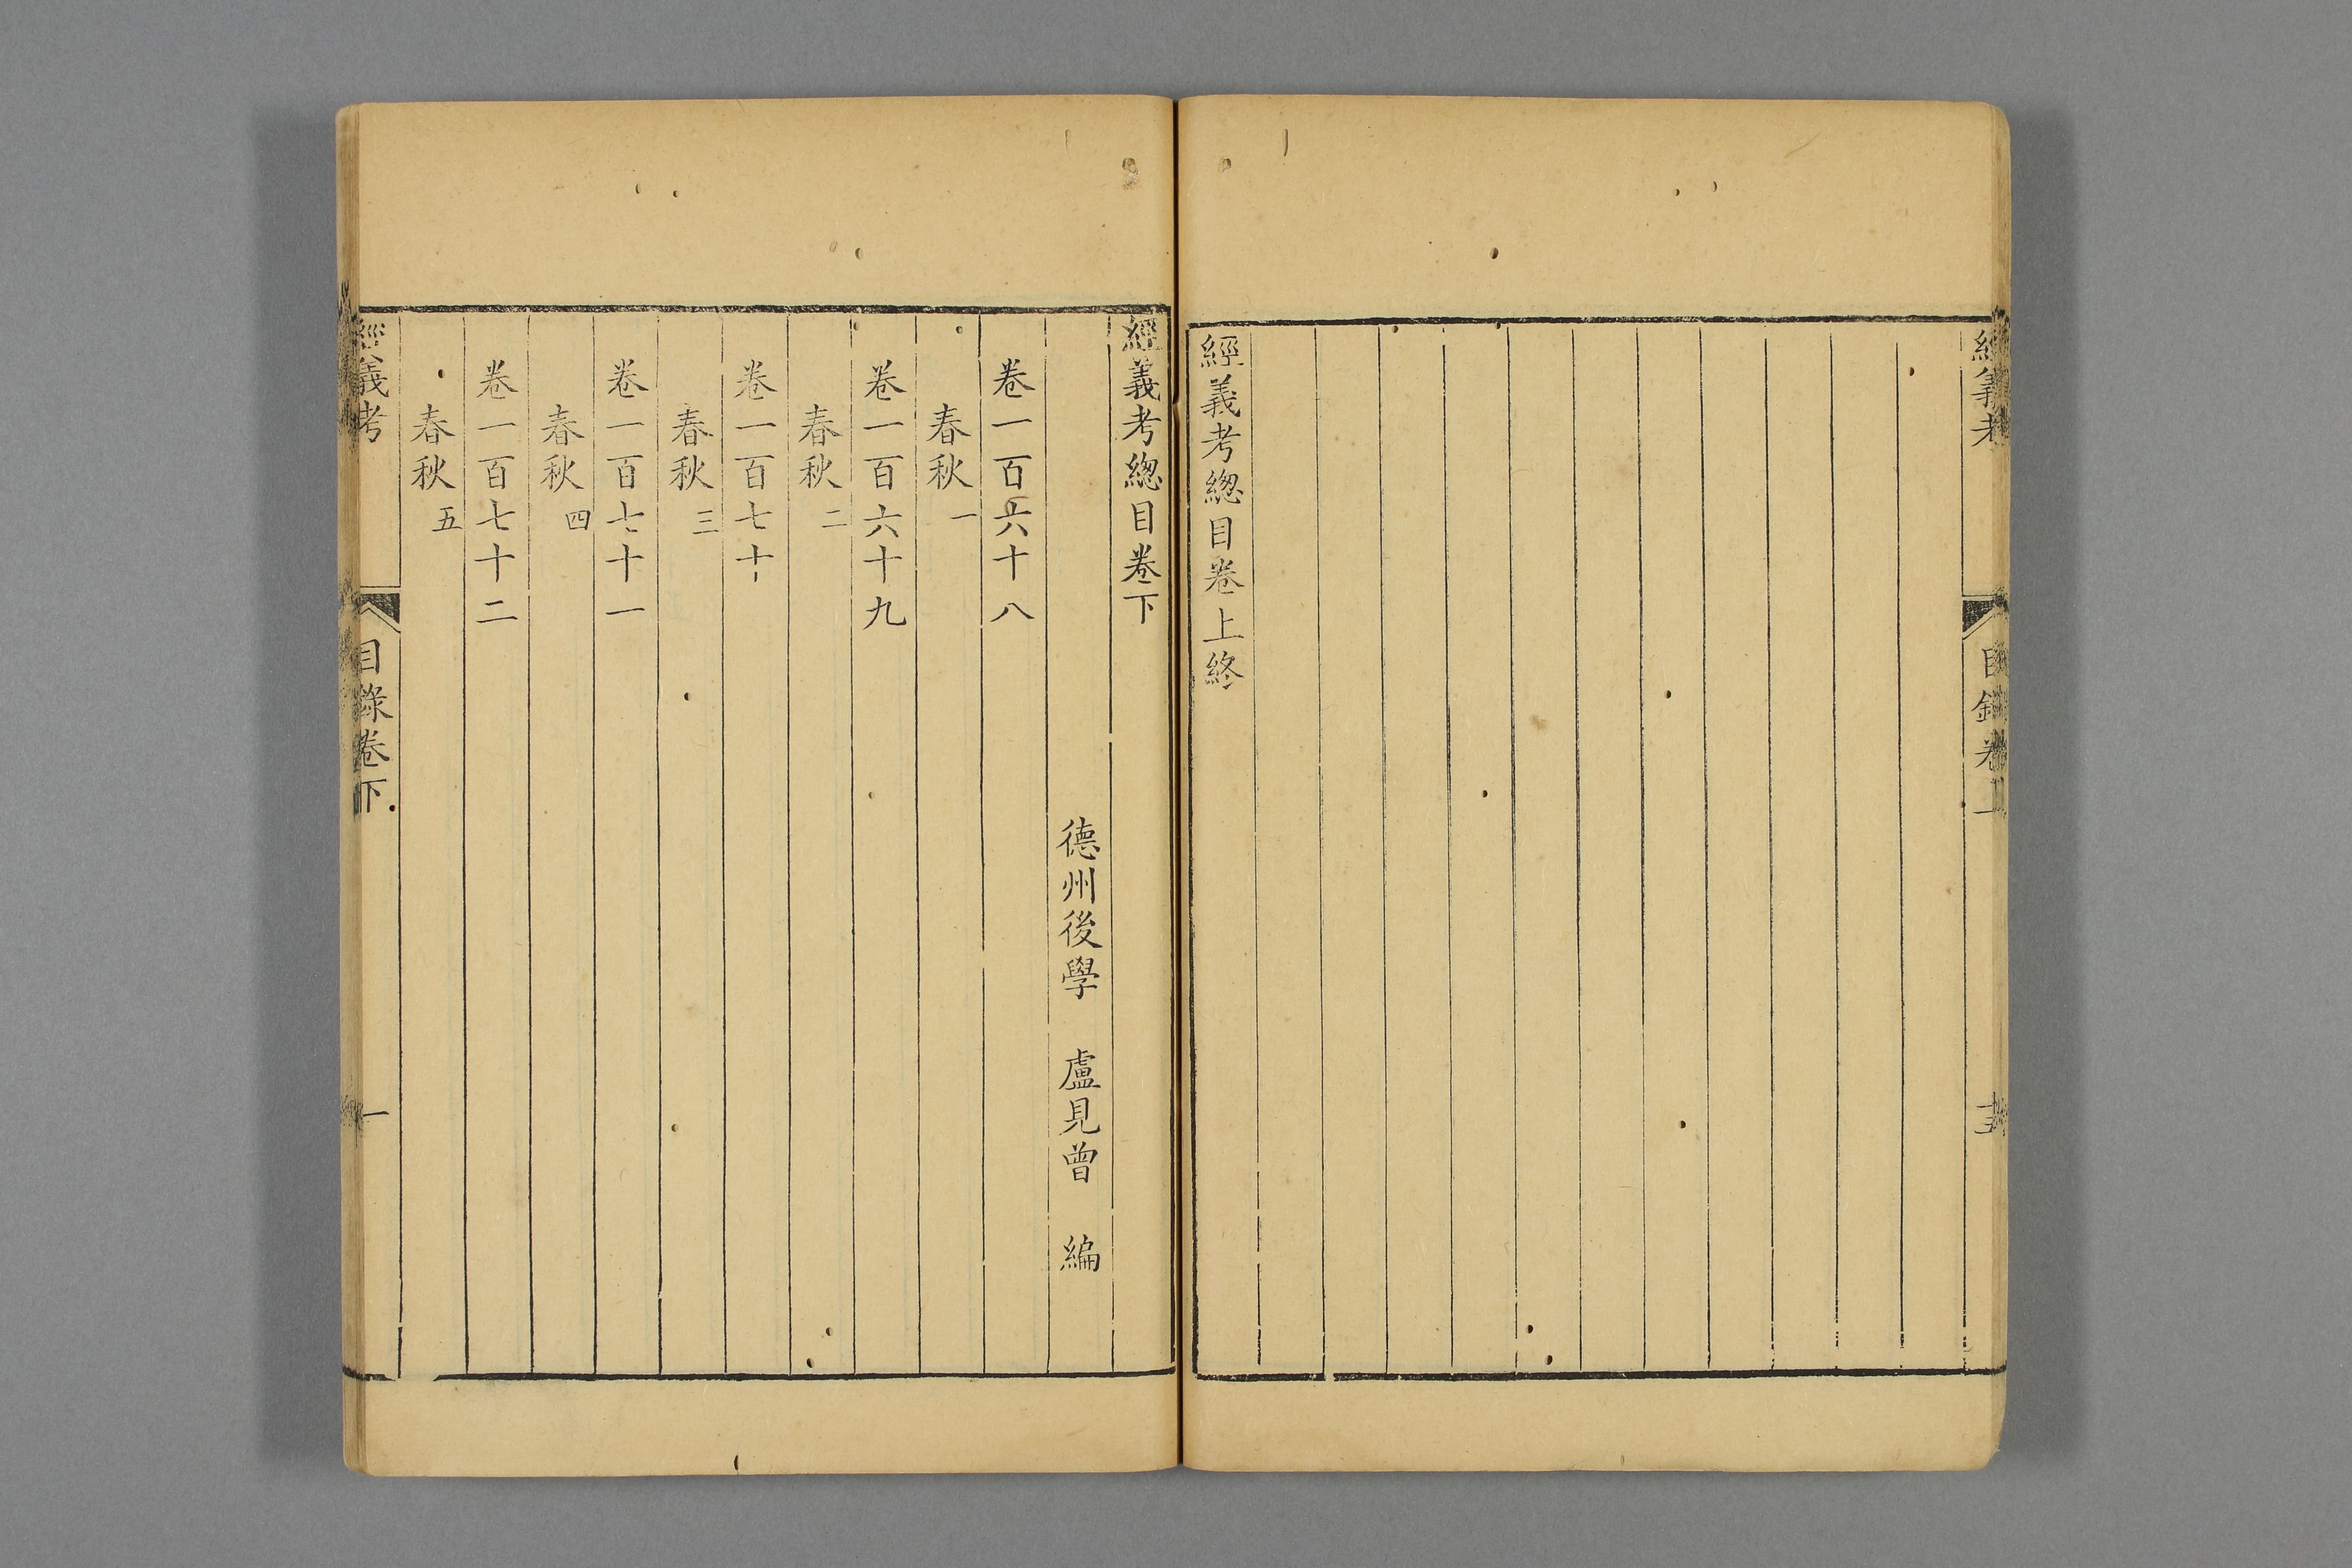 經義考
目錄卷上
經義考總目卷上終
經義考總目卷下
德州後學 盧見曾 編
卷一百六十八
春秋一
卷一百六十九
春秋二
卷一百七十
春秋三
卷一百七十一
春秋四
卷一百七十二
春秋五
經義考
目錄卷下
一